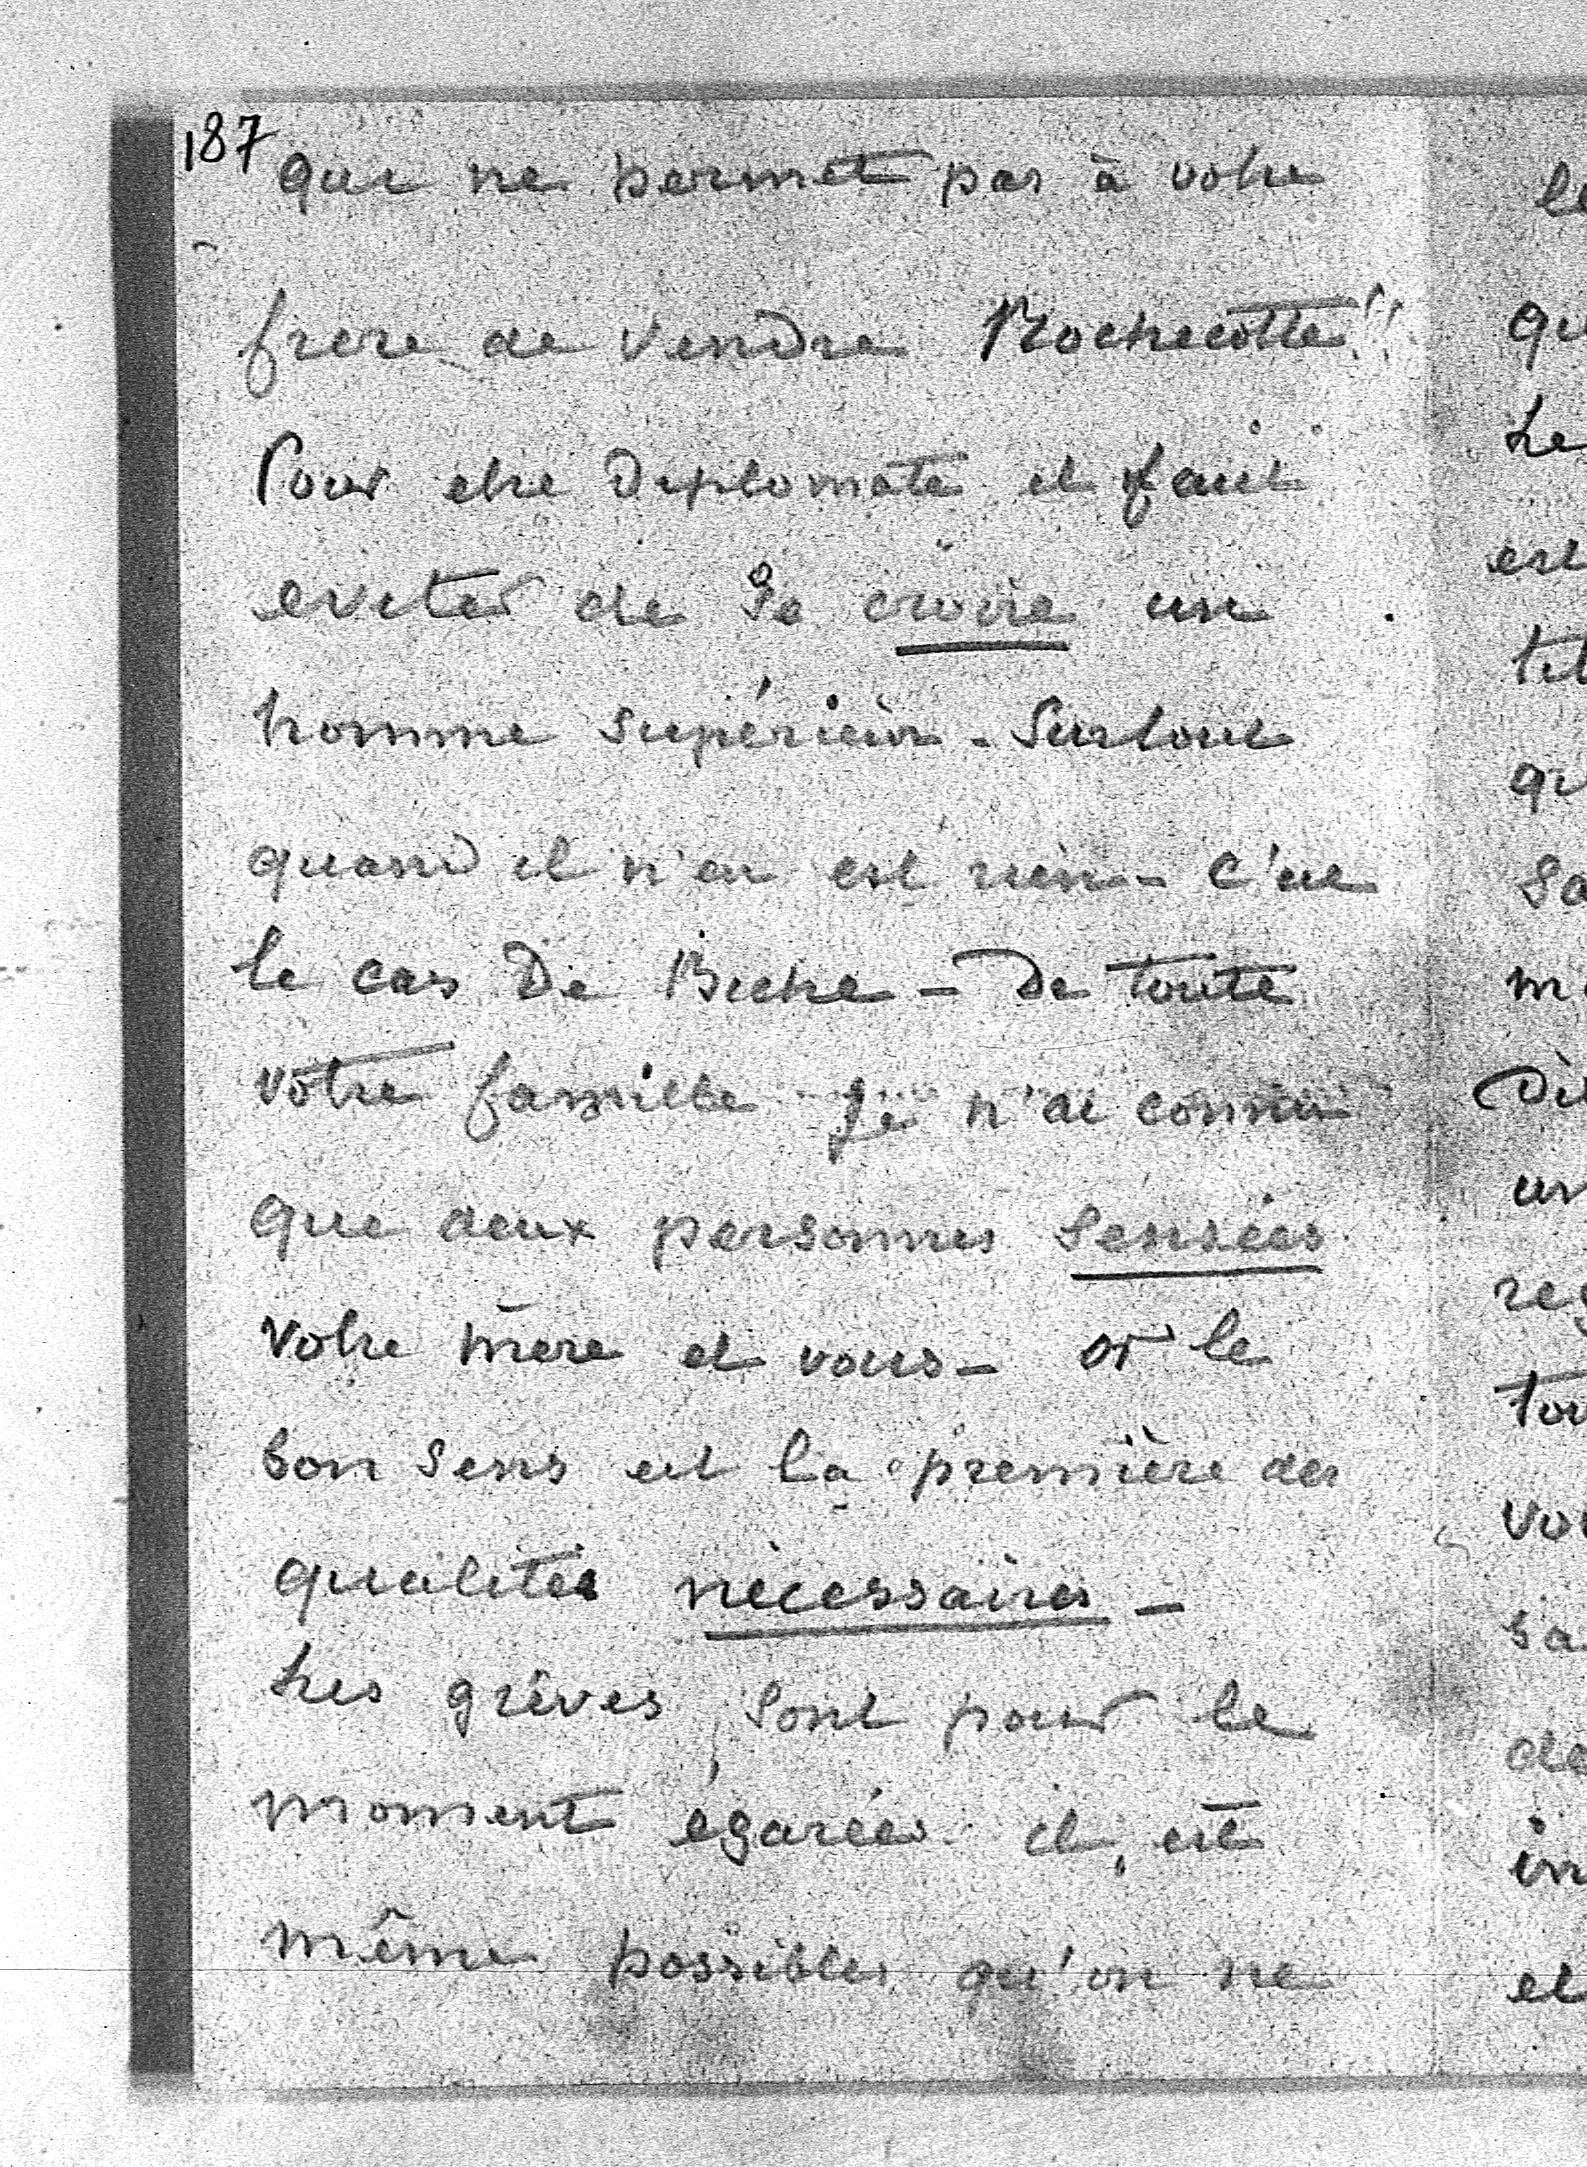 187
que ne permet pas à votre
frere de vendre Rochecotte!!
Pour etre Diplomate il faut
eviter de Se croire un
homme supérieur. Surtout
quand il n'en est rien - C'est
le cas De Biche - De toute
votre famille Je n'ai connu
que deux personnes Sensées
Votre mère et vous - or le
bon Sens est la première des
qualités nécessaires -
Les grèves sont pour le
moment égarées il est
même possible qu'on ne